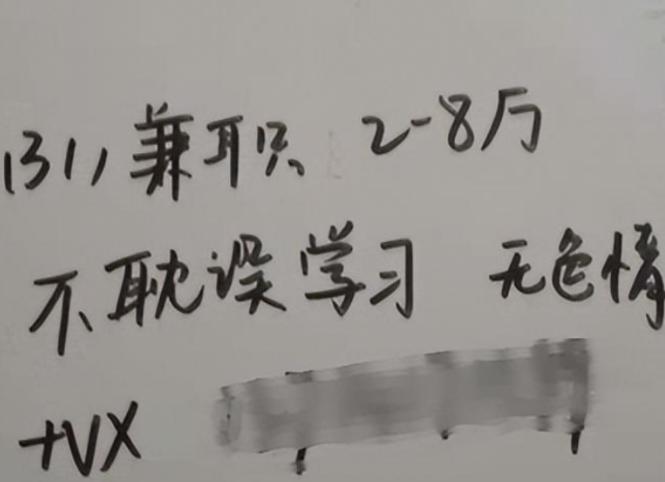 (31) 兼职 2-8万
不耽误学习 无色情
+VX